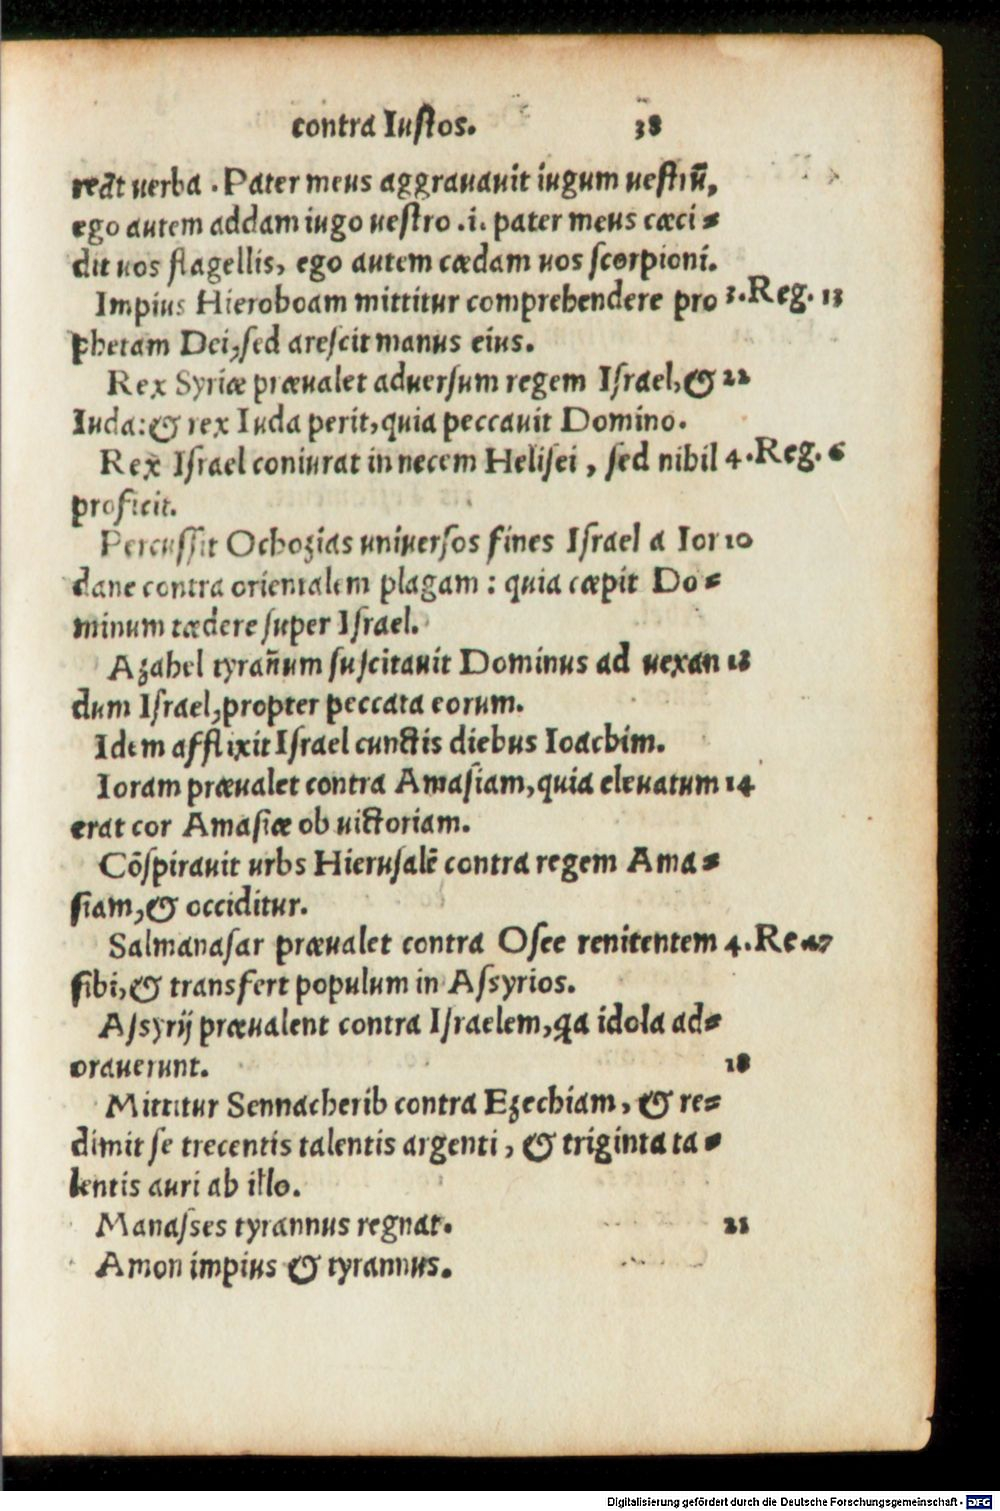 contra Iustos. 38
reãt uerba . Pater meus aggrauauit iugum uestrũ,
ego autem addam iugo uestro .i. pater meus cæci-
dit uos flagellis, ego autem cædam uos scorpioni.
Impius Hieroboam mittitur comprehendere pro 3.Reg. 13
phetam Dei, sed arescit manus eius.
Rex Syriæ præualet aduersum regem Israel, & 22
Iuda: & rex Iuda perit, quia peccauit Domino.
Rex Israel coniurat in necem Helisei , sed nihil 4.Reg. 6
proficit.
Percussit Ochozias uniuersos fines Israel a Ior 10
dane contra orientalem plagam : quia cæpit Do-
minum tædere super Israel.
Azahel tyrañum suscitauit Dominus ad uexan 13
dum Israel, propter peccata eorum.
Idem afflixit Israel cunctis diebus Ioachim.
Ioram præualet contra Amasiam, quia eleuatum 14
erat cor Amasiæ ob uictoriam.
Cõspirauit urbs Hierusalẽ contra regem Ama-
siam, & occiditur.
Salmanasar præualet contra Osee renitentem 4.Re. 17
sibi, & transfert populum in Assyrios.
Assyrij præualent contra Israelem, qa idola ad-
orauerunt. 18
Mittitur Sennacherib contra Ezechiam , & re-
dimit se trecentis talentis argenti , & triginta ta-
lentis auri ab illo.
Manasses tyrannus regnat. 21
Amon impius & tyrannus.
Digitalisierung gefördert durch die Deutsche Forschungsgemeinschaft - DFG